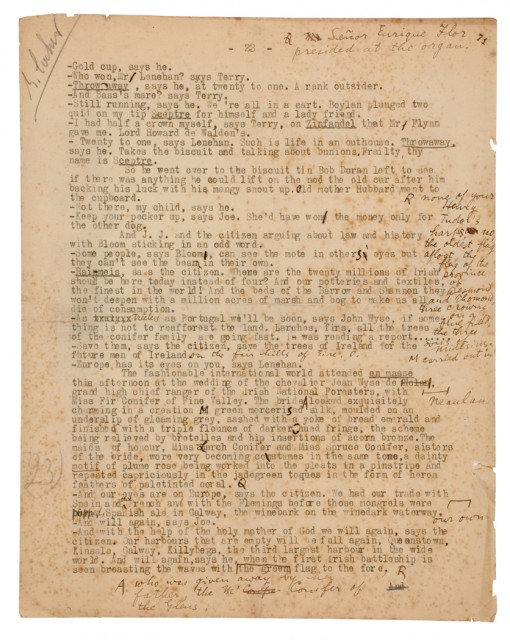 Señor Enrique Flor
presided at the organ.
- 23 -
-Gold cup, says he.
-Who won, Mr Lenehan? says Terry.
-Throwaway, says he, at twenty to one. A rank outsider.
-And Bass's mare? says Terry.
-Still running, says he. We're all in a cart. Boylan plunged two
quid on my tip Sceptre for himself and a lady friend.
-I had half a crown myself, says Terry, on Zinfandel that Mr Flynn
gave me. Lord Howard de Walden's.
- Twenty to one, says Lenehan. Such is life in an outhouse. Throwaway,
says he. Takes the biscuit and talking about bunions. Frailty, thy
name is Sceptre.
So he went over to the biscuit tin Bob Doran left to see
if there was anything he could lift on the nod the old cur after him
backing his luck with his mangy snout up. Old mother Hubbard went to
the cupboard.
-Not there, my child, says he.
-Keep your pecker up, says Joe. She'd have won the money only for
the other dog.
And J. J. and the citizen arguing about law and history
with Bloom sticking in an odd word.
-Some people, says Bloom, can see the mote in others' eyes but
they can't see the beam in their own.
-Raimeis, says the citizen. Where are the twenty millions of Irish
should be here today instead of four? And our potteries and textiles,
the finest in the world! And the beds of the Barrow and Shannon they
won't deepen with a million acres of marsh and bog to make us all
die of consumption.
-As treeless as Portugal we'll be soon, says John Wyse, if some-
thing is not to reafforest the land. Larches, firs, all the trees
of the conifer family are going fast. I was reading a report....
-Save them, says the citizen, save the trees of Ireland for the
future men of Ireland on the fair hills of
-Europe has its eyes on you, says Lenehan.
The fashionable international world attended en masse
this afternoon at the wedding of the chevalier Jean Wyse de
grand high chief ranger of the Irish National Foresters, with
Miss Fir Conifer of Pine Valley. The bride looked exquisitely
charming in a creation M green mercerised silk, moulded on an
underslip of gloaming grey, sashed with a yoke of broad emerald and
finished with a triple flounce of darker hued fringe, the scheme
being relieved by bretelles and hip insertions of acorn bronze. The
maids of honour, Miss Larch Conifer and Miss Spruce Conifer, sisters
of the bride, wore very becoming costumes in the same tone, a dainty
motif of plume rose being worked into the pleats in a pinstripe and
repeated capriciously in the jadegreen toques in the form of heron
feathers of paletinted coral.
-And our eyes are on Europe, says the citizen. We had our trade with
Spain and French and with the Flemings before those mongrels were
pupped. Spanish ale in Galway, the winebark on the winedark waterway.
-And will again, says Joe.
-And with the help of the holy mother of God we will again, says the
citizen. Our harbours that are empty will be full again, Queenstown,
Kinsale, Galway, Killybegs, the third largest harbour in the wide
world. And will again, says he, when the first Irish battleship is
seen breasting the waves with the green flag to the fore,
R none of your
Henry
Tudor's
harps, no
the oldest flag
afloat, the
flag of the
province
of
Desmond
and Thomond,
three crowns
on a
blue field
the three
sons of
M carried out in
Neaulan
our own
A who was given away by
father the M' Conifer of
the Glens.